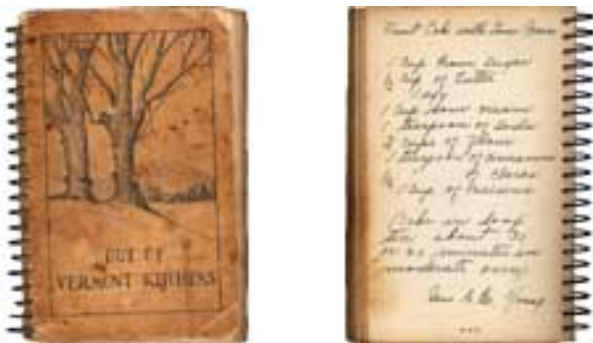 OUT OF
VERMONT KITCHENS
Fruit Cake with Sour Cream
1 cup brown sugar
½ cup of butter
1 egg
1 cup sour cream
1 teaspoon of soda
2 cups of flour
1 teaspoon of cinnamon
½ " cloves
1 cup of raisins
Bake in loaf
tin about 30
or 40 minutes in
moderate oven